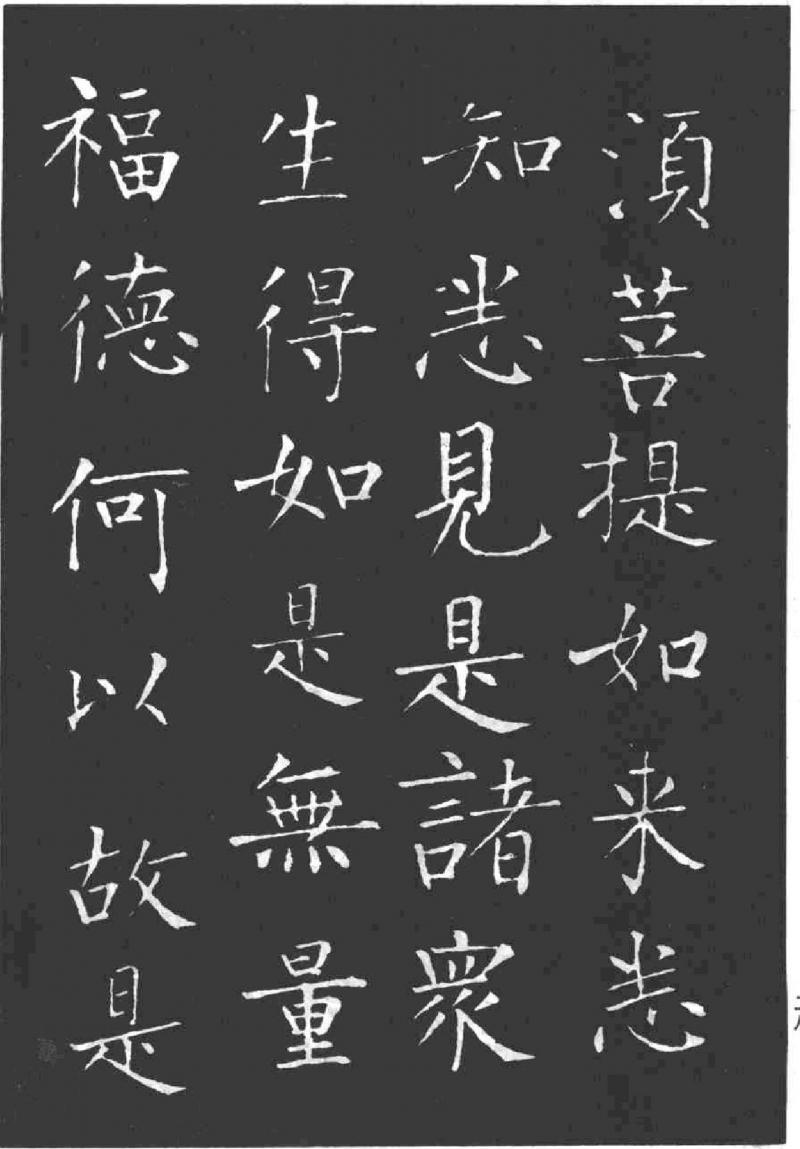 須菩提如来悉
知悉見是諸衆
生得如是無量
福德何以故是